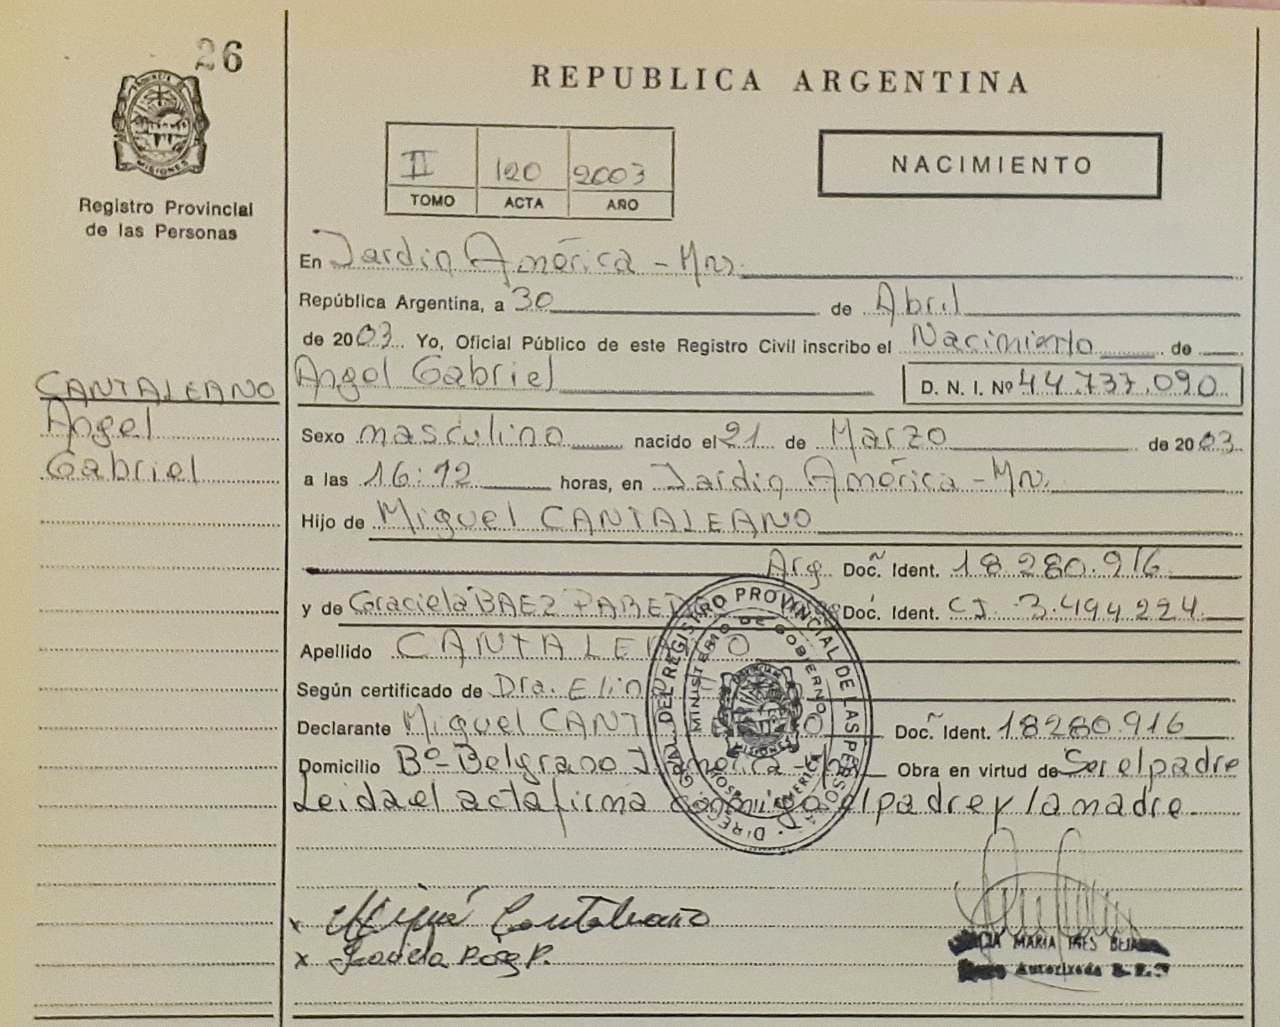 26
REPUBLICA ARGENTINA
MISIONES
Registro Provincial
de las Personas
II 120 2003
TOMO ACTA AÑO
NACIMIENTO
En Jardin América - Mnes.
República Argentina, a 30 de Abril
de 2003. Yo, Oficial Público de este Registro Civil inscribo el Nacimiento de
Angel Gabriel D. N. I. Nº 44.737.090
CANTALEANO
Angel
Gabriel
Sexo masculino nacido el 21 de Marzo de 2003
a las 16:12 horas, en Jardin América - Mn.
Hijo de Miguel CANTALEANO
Arg. Doc. Ident. 18.280.916
y de Graciela BAEZ PAREDE Doc. Ident. CI. 3.494.224
Apellido CANTALE O
Según certificado de Dra. Elin
Declarante Miguel CANT O Doc. Ident. 18280.916
Domicilio Bº Belgrano J. América Obra en virtud de Ser el padre
Leida el acta firma conmigo el padre y la madre.
DIREC. GRAL. DEL REGISTRO PROVINCIAL DE LAS PERSONAS
MINISTERIO DE GOBIERNO
MISIONES
x Cantaleano
x
MARIA INES
Autorizada